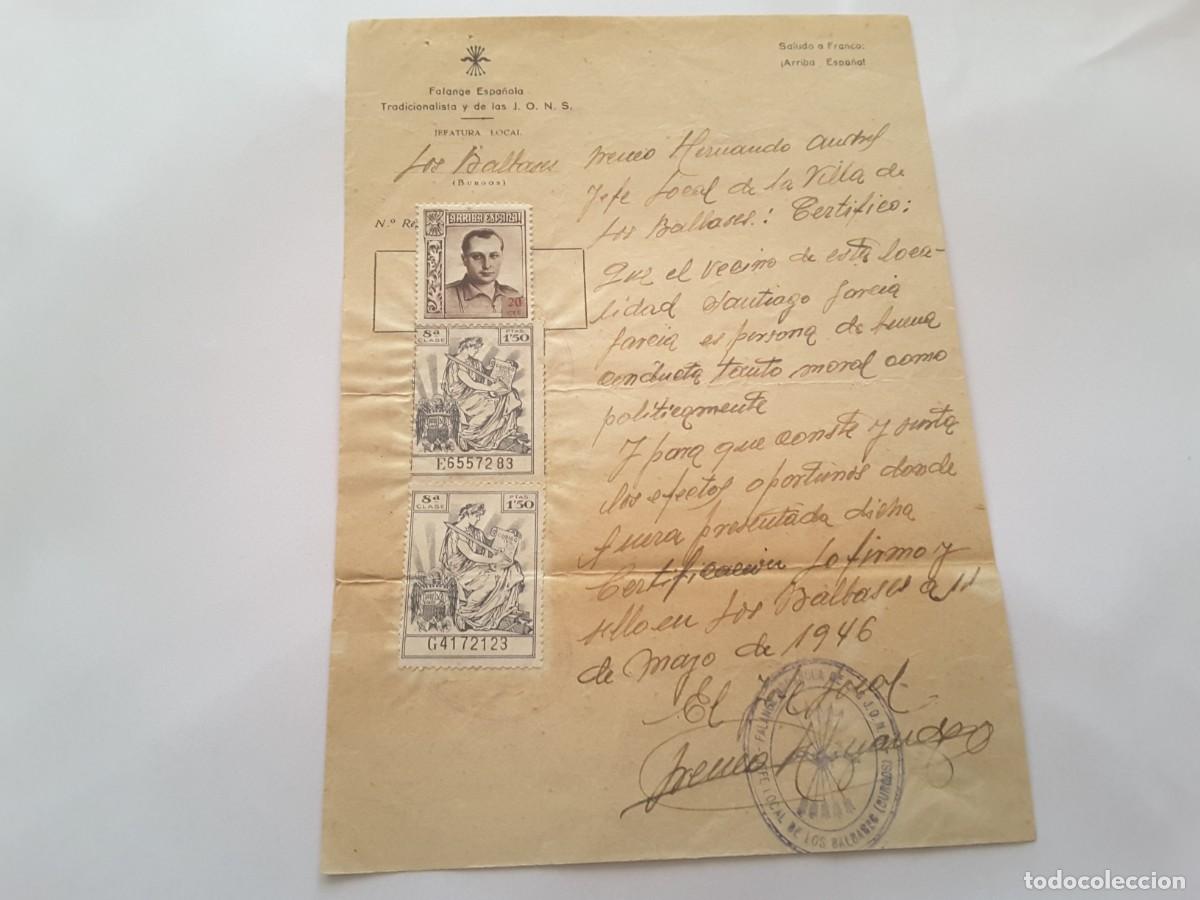 Falange Española
Tradicionalista y de las J. O. N. S.
JEFATURA LOCAL
Los Balbases
(BURGOS)
Saludo a Franco:
¡Arriba España!
N.º Re
ARRIBA ESPAÑA!
20
CTS
8ª
CLASE
PTAS.
1'50
E6557283
8ª
CLASE
PTAS.
1'50
G4172123
Ireneo Hernando
Jefe Local de la Villa de
Los Balbases: Certifico:
Que el vecino de esta loca-
lidad Santiago Garcia
Garcia es persona de buena
conducta tanto moral como
politicamente
Y para que conste y surta
los efectos oportunos donde
fuera presentada dicha
Certificacion la firmo y
sello en Los Balbases a 11
de Mayo de 1946
El Jefe Local
Ireneo Hernando
FALANGE ESPAÑOLA DE LAS J.O.N.S.
JEFE LOCAL DE LOS BALBASES (BURGOS)
todocoleccion